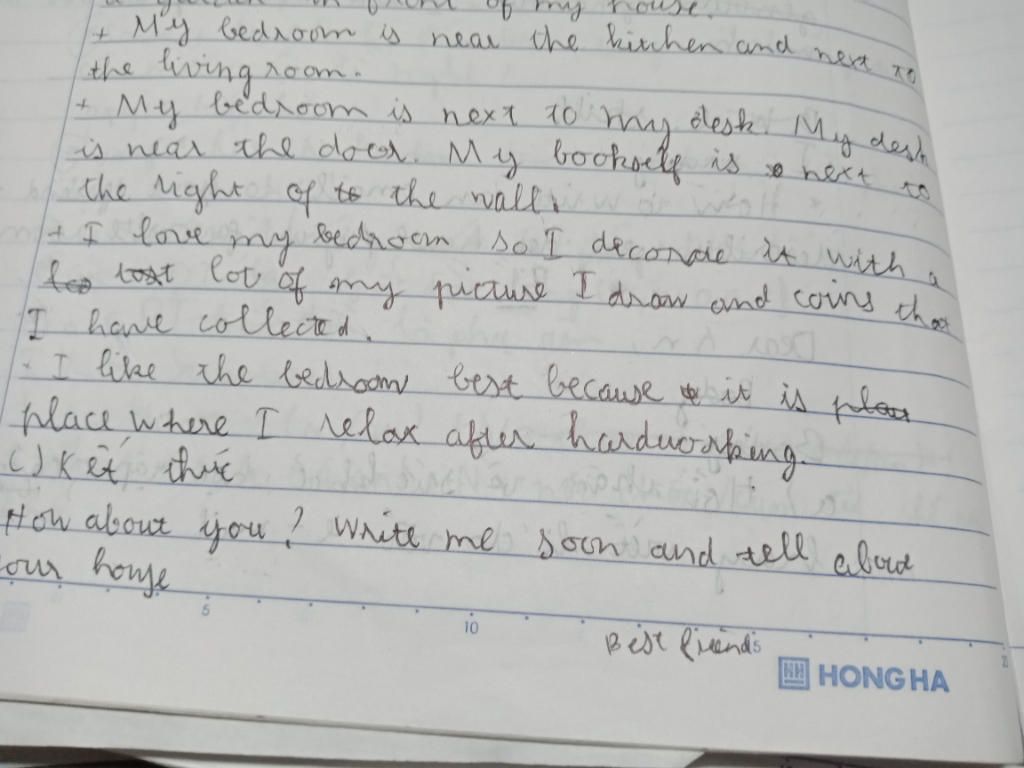 in front of my house.
+ My bedroom is near the kitchen and next to
the living room.
+ My bedroom is next to my desk. My desk
is near the door. My bookself is next to
the right of to the wall.
+ I love my bedroom so I decorade it with a
lot of my picture I draw and coins that
I have collected.
- I like the bedroom best because it is
place where I relax after hardworking.
c) Kết thúc
How about you? Write me soon and tell about
your house
5 10
Best friends
HONG HA